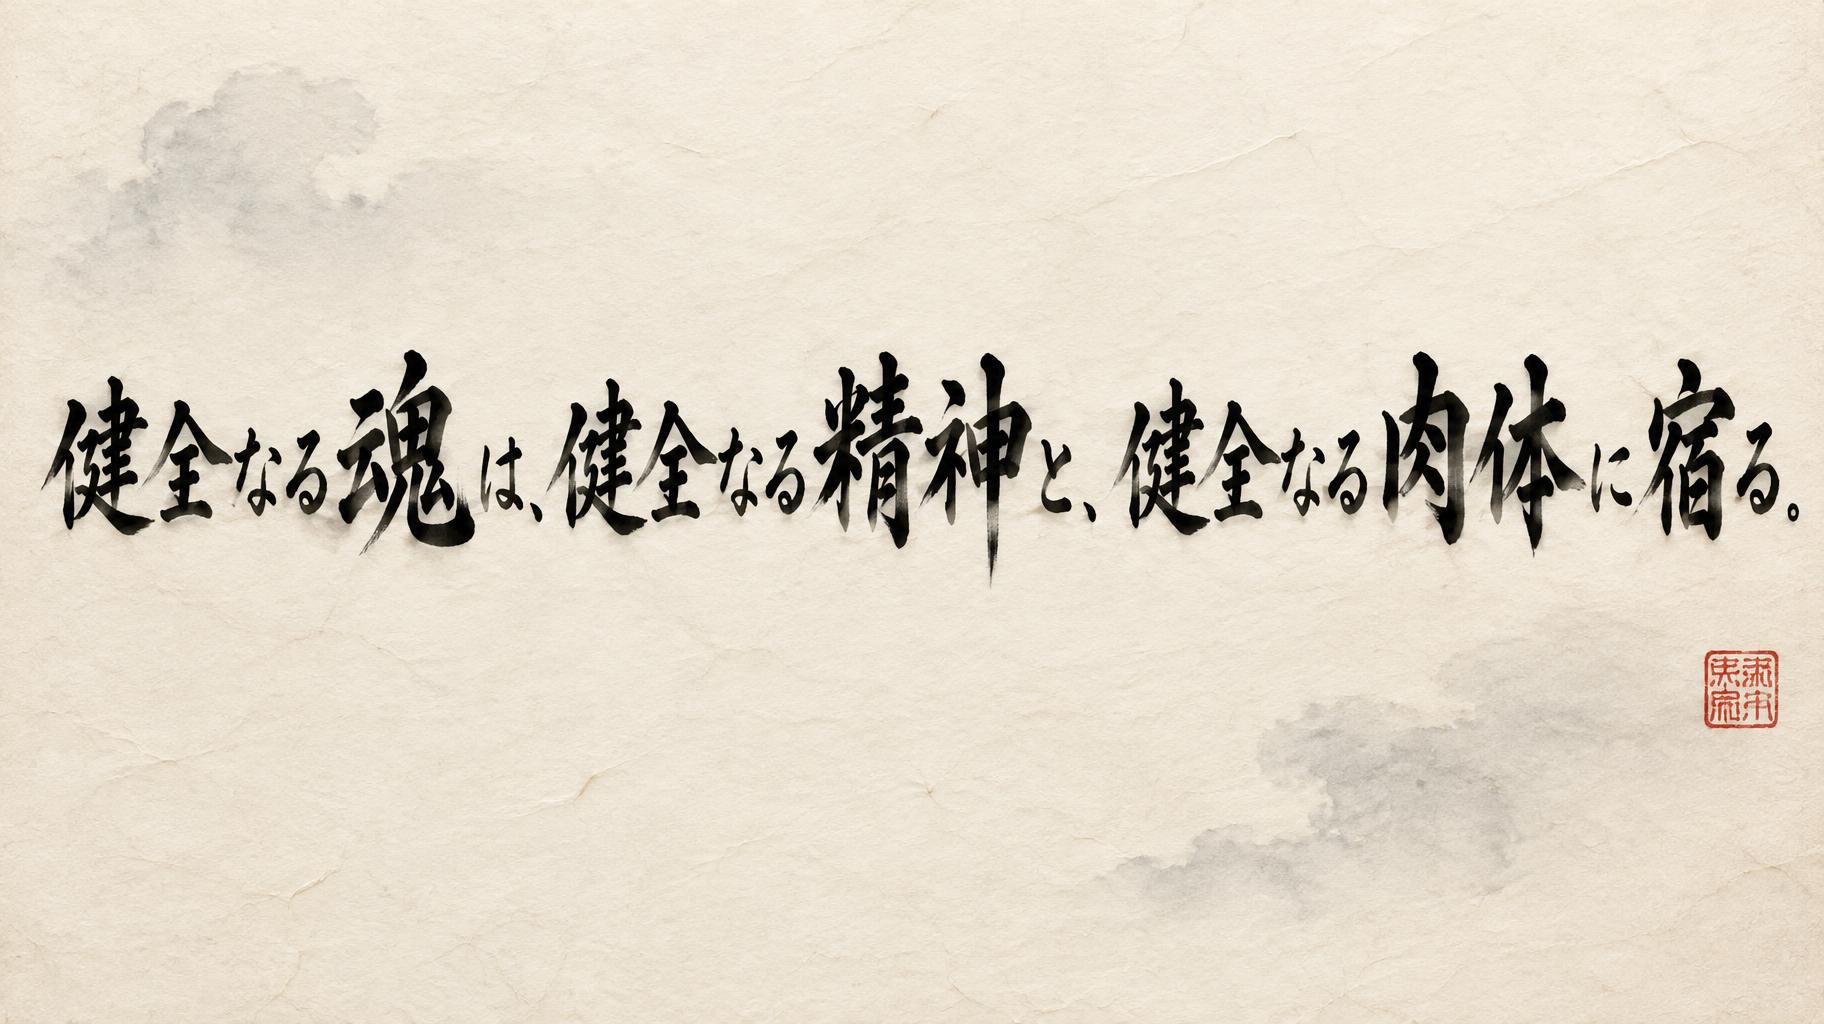 健全なる魂は、健全なる精神と、健全なる肉体に宿る。